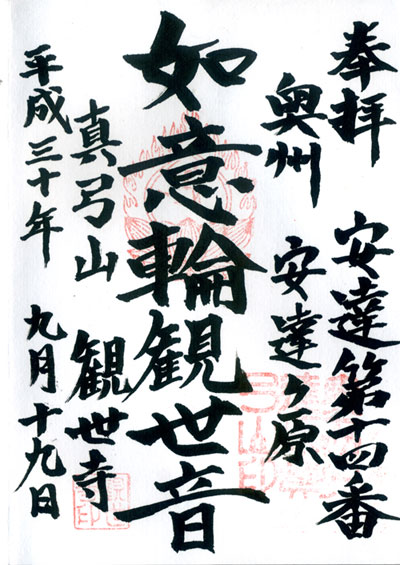 奉拝　安達第十四番
奥州　安達ヶ原
如意輪観世音
真弓山　観世寺
平成三十年　九月十九日